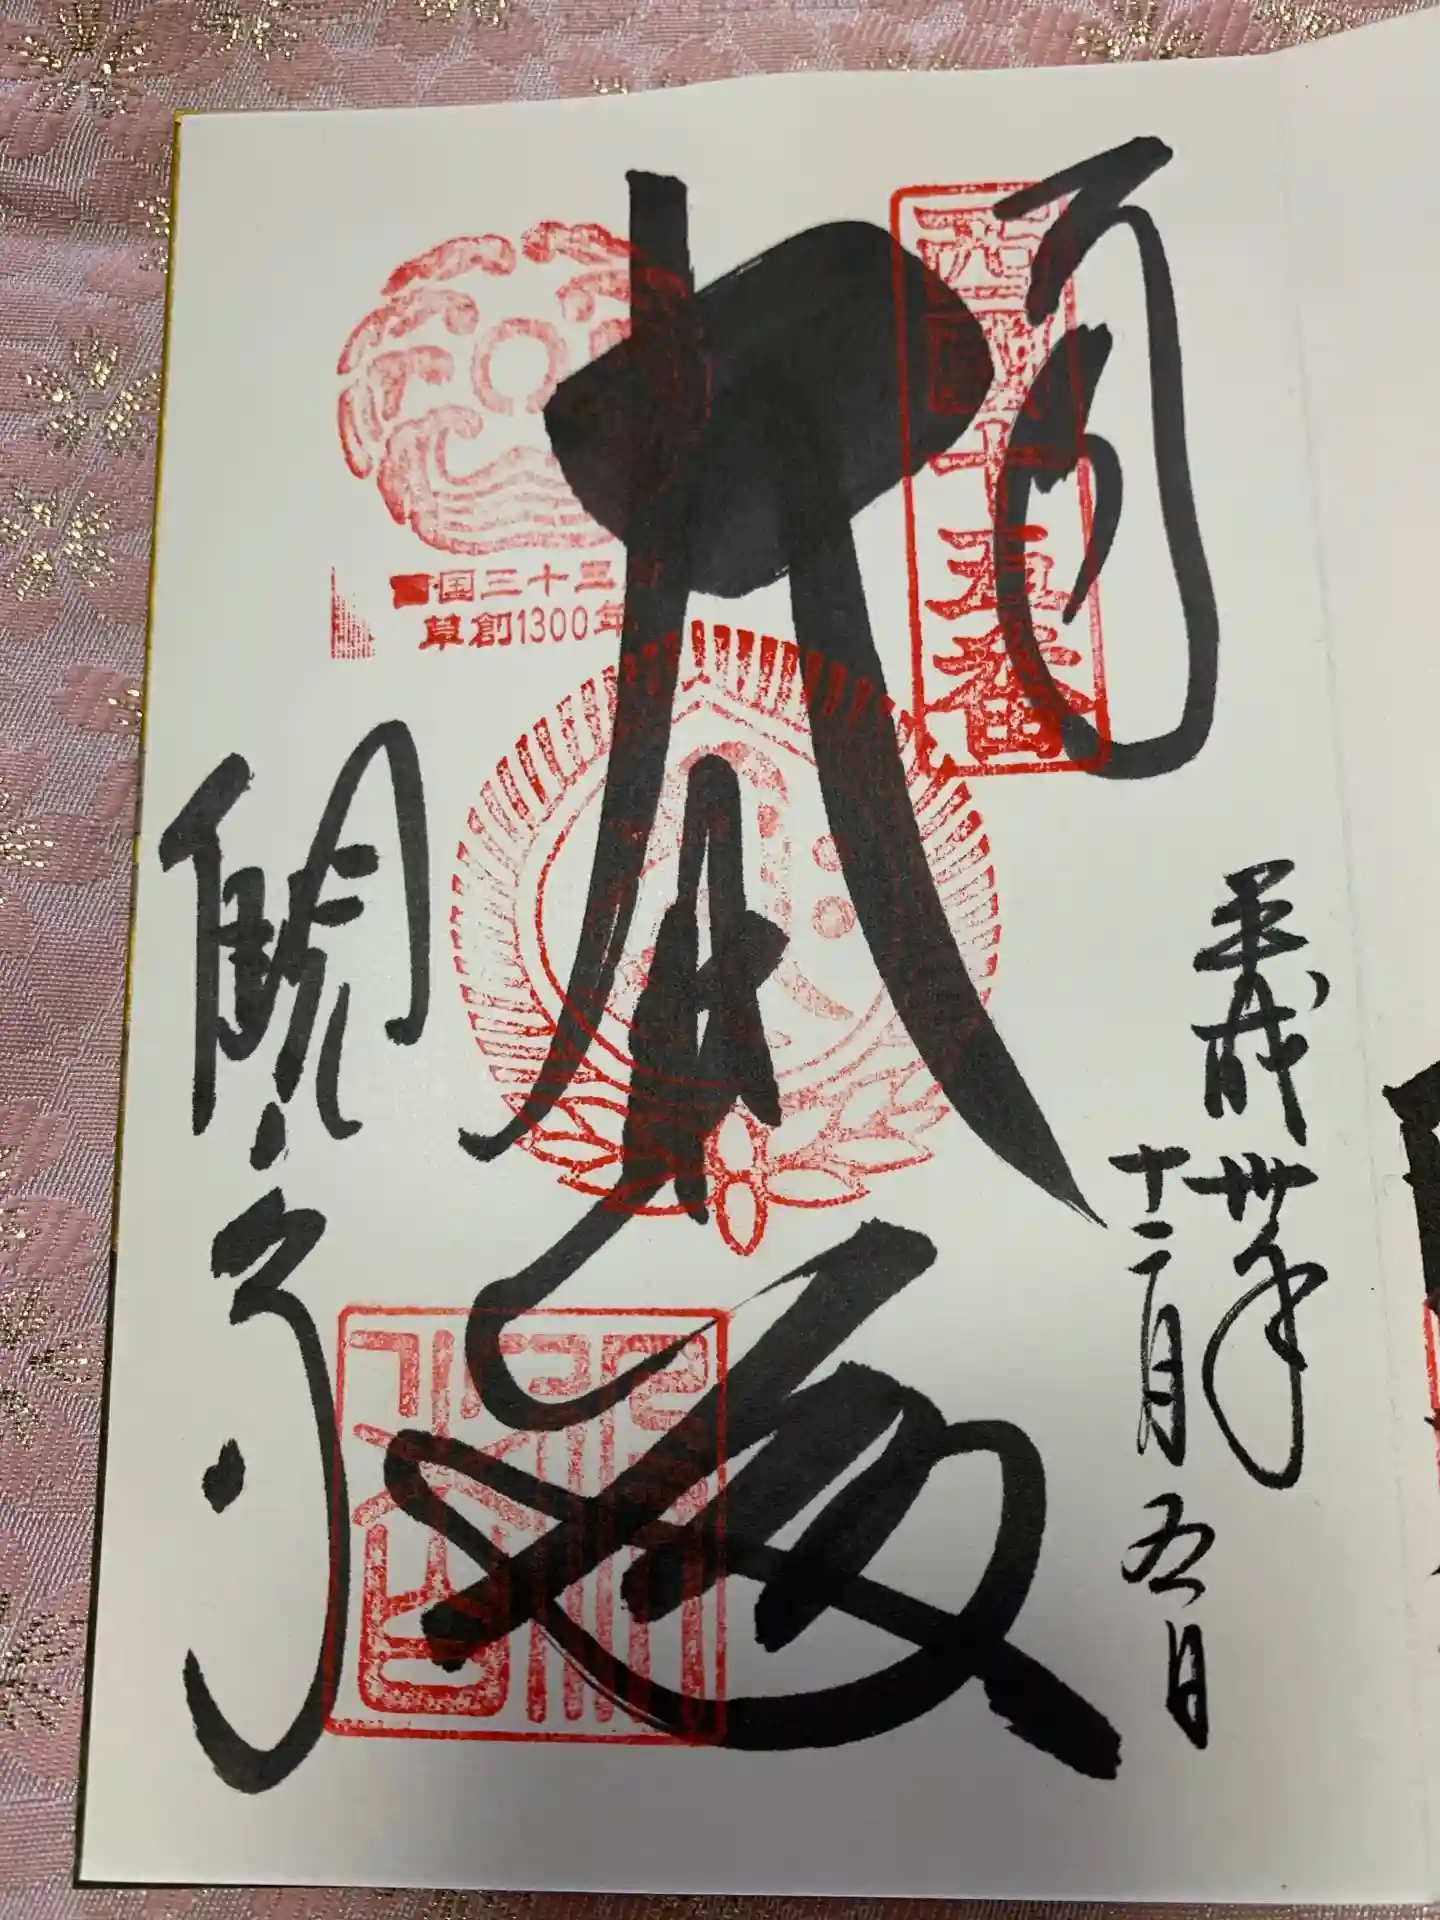 奉拝
西國十五番
平成卅年
十二月五日
大悲殿
国三十三
草創1300年
観音寺